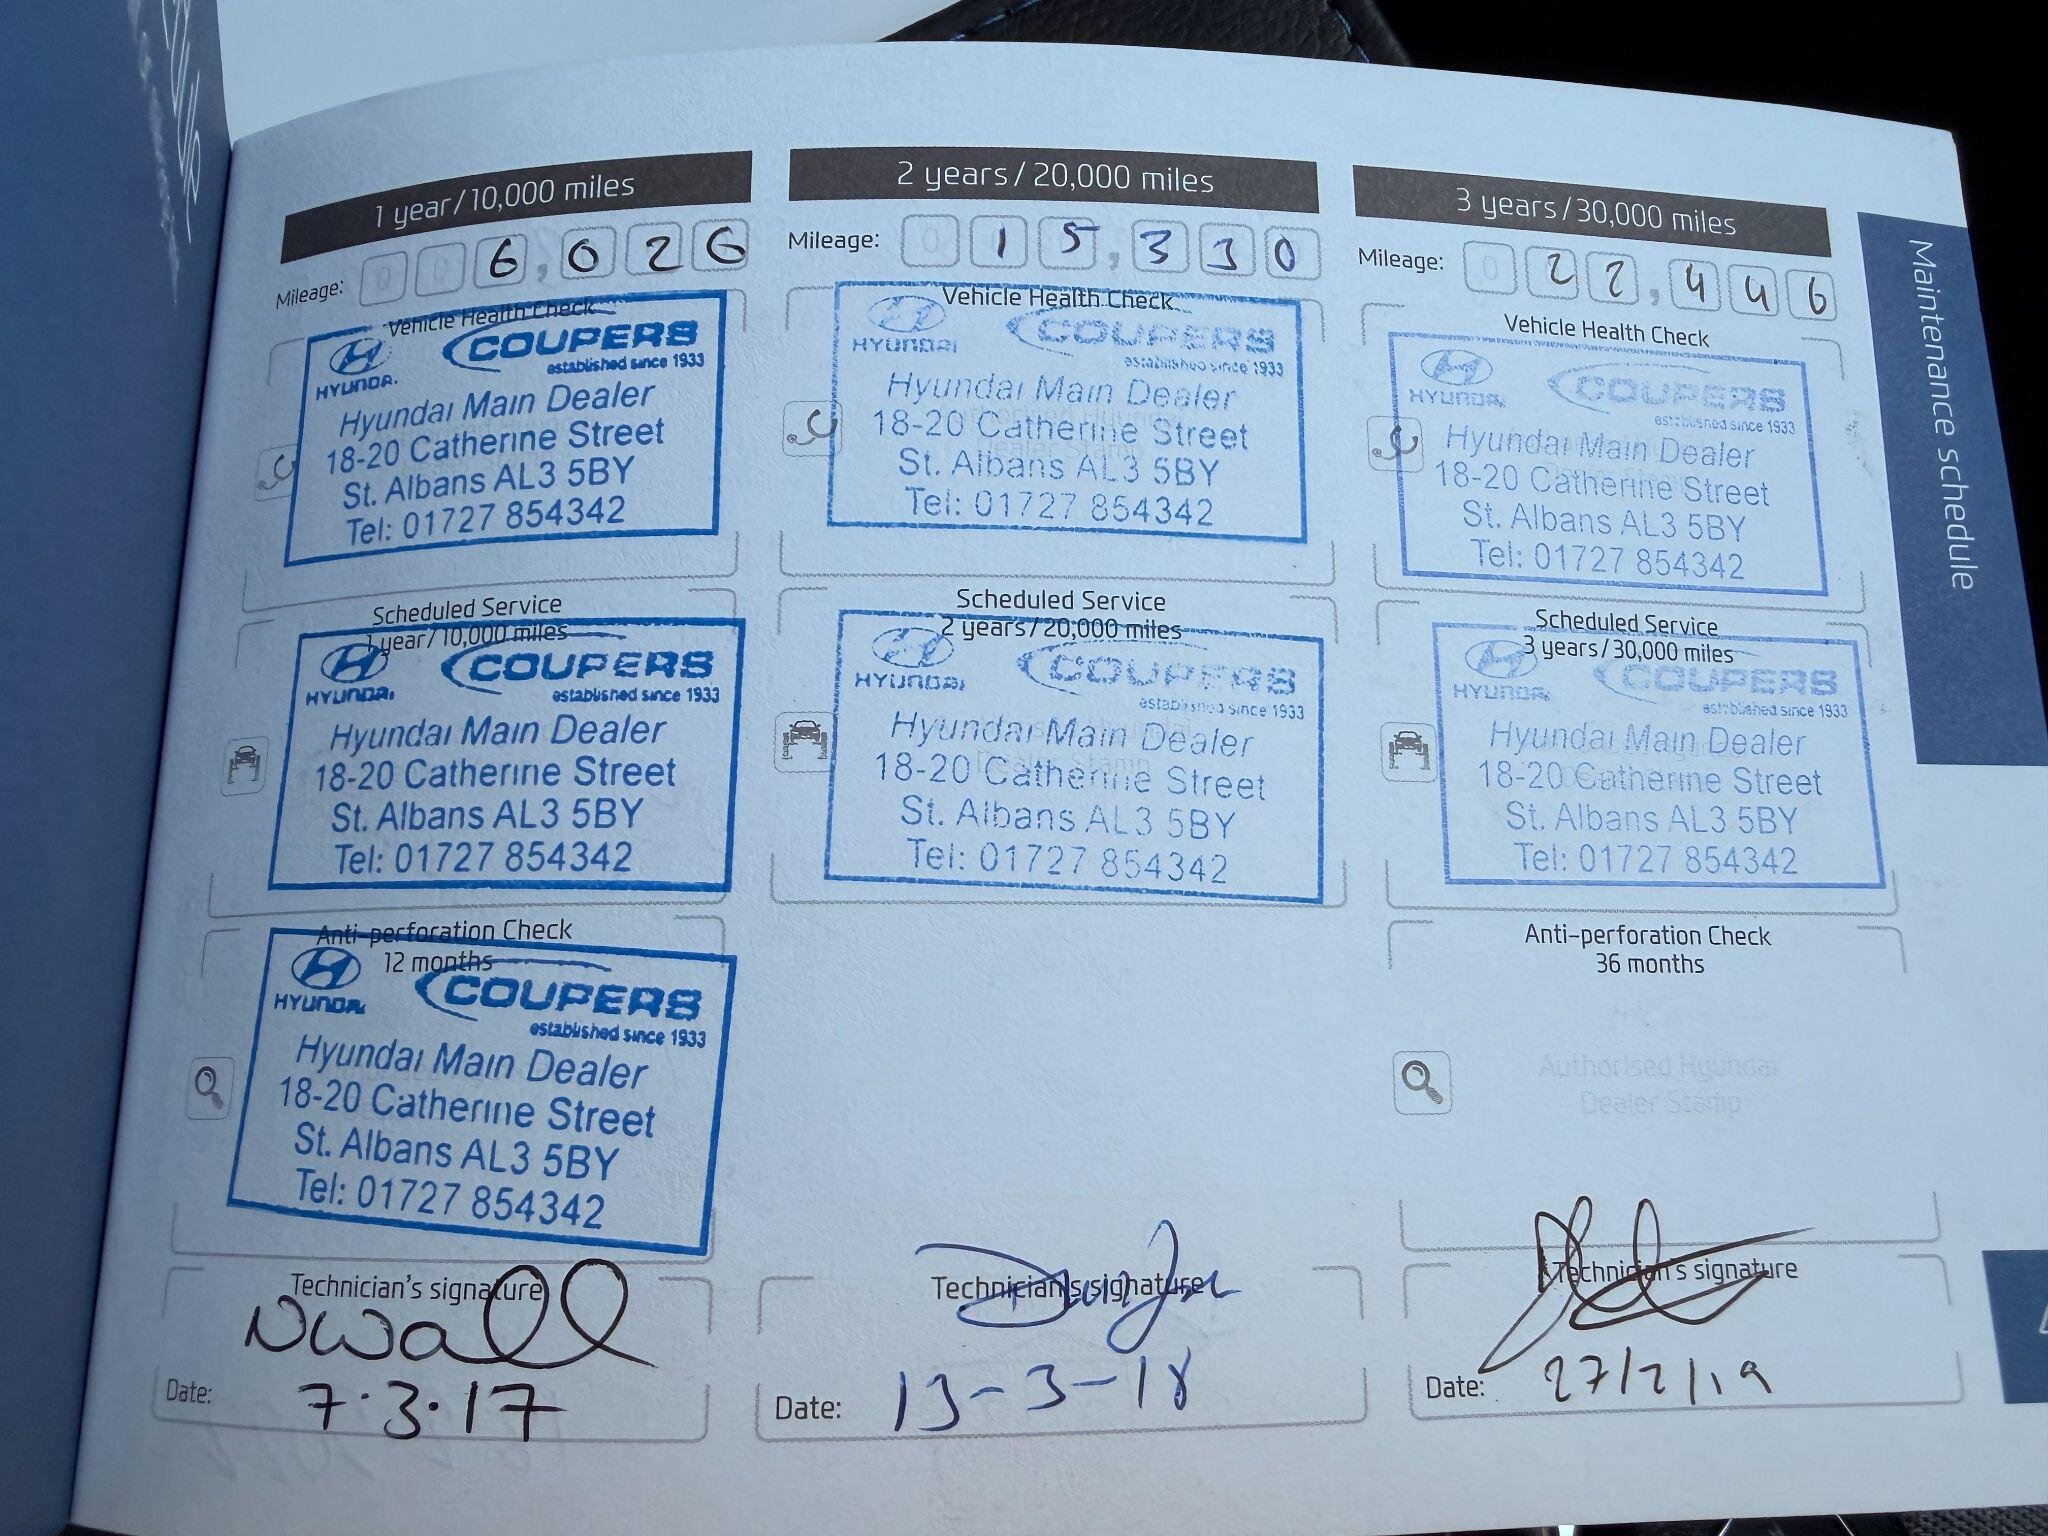 1 year/10,000 miles
Mileage: 6,026
Vehicle Health Check
HYUNDAI COUPERS
established since 1933
Hyundai Main Dealer
18-20 Catherine Street
St. Albans AL3 5BY
Tel: 01727 854342
Scheduled Service
1 year/10,000 miles
HYUNDAI COUPERS
established since 1933
Hyundai Main Dealer
18-20 Catherine Street
St. Albans AL3 5BY
Tel: 01727 854342
Anti-perforation Check
12 months
HYUNDAI COUPERS
established since 1933
Hyundai Main Dealer
18-20 Catherine Street
St. Albans AL3 5BY
Tel: 01727 854342
Technician's signature
NWall
Date: 7.3.17
2 years/20,000 miles
Mileage: 015,330
Vehicle Health Check
HYUNDAI COUPERS
established since 1933
Hyundai Main Dealer
18-20 Catherine Street
St. Albans AL3 5BY
Tel: 01727 854342
Scheduled Service
2 years/20,000 miles
HYUNDAI COUPERS
established since 1933
Hyundai Main Dealer
18-20 Catherine Street
St. Albans AL3 5BY
Tel: 01727 854342
Technician's signature
Date: 13-3-18
3 years/30,000 miles
Mileage: 022,446
Vehicle Health Check
HYUNDAI COUPERS
established since 1933
Hyundai Main Dealer
18-20 Catherine Street
St. Albans AL3 5BY
Tel: 01727 854342
Scheduled Service
3 years/30,000 miles
HYUNDAI COUPERS
established since 1933
Hyundai Main Dealer
18-20 Catherine Street
St. Albans AL3 5BY
Tel: 01727 854342
Anti-perforation Check
36 months
Authorised Hyundai
Dealer Stamp
Technician's signature
Date: 27/2/19
Maintenance schedule